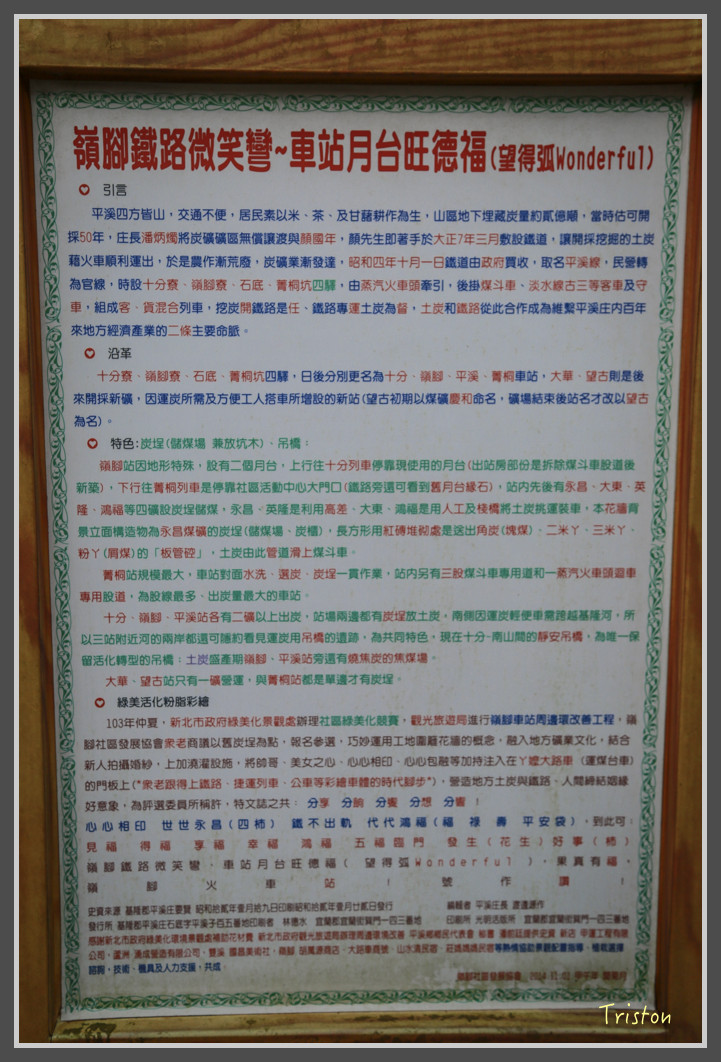 嶺腳鐵路微笑彎~車站月台旺德福(望得弧Wonderful)
引言
平溪四方皆山，交通不便，居民素以米、茶、及甘藷耕作為生，山區地下埋藏炭量約貳億頓，當時估可開
採50年，庄長潘炳燭將炭礦礦區無償讓渡與顏國年，顏先生即著手於大正7年三月敷設鐵道，讓開採挖掘的土炭
藉火車順利運出，於是農作漸荒廢，炭礦業漸發達，昭和四年十月一日鐵道由政府買收，取名平溪線，民營轉
為官線，時設十分寮、嶺腳寮、石底、菁桐坑四驛，由蒸汽火車頭牽引，後掛煤斗車、淡水線古三等客車及守
車，組成客、貨混合列車，挖炭開鐵路是任、鐵路專運土炭為督，土炭和鐵路從此合作成為維繫平溪庄內百年
來地方經濟產業的二條主要命脈。
沿革
十分寮、嶺腳寮、石底、菁桐坑四驛，日後分別更名為十分、嶺腳、平溪、菁桐車站，大華、望古則是後
來開採新礦，因運炭所需及方便工人搭車所增設的新站(望古初期以煤礦慶和命名，礦場結束後站名才改以望古
為名)。
特色:炭埕(儲煤場 兼放坑木)、吊橋：
嶺腳站因地形特殊，設有二個月台，上行往十分列車停靠現使用的月台(出站房部份是拆除煤斗車股道後
新築)，下行往菁桐列車是停靠社區活動中心大門口(鐵路旁還可看到舊月台緣石)，站內先後有永昌、大東、英
隆、鴻福等四礦設炭埕儲煤，永昌、英隆是利用高差、大東、鴻福是用人工及棧橋將土炭挑運裝車，本花牆背
景立面構造物為永昌煤礦的炭埕(儲煤場、炭櫃)，長方形用紅磚堆砌處是送出角炭(塊煤)、二米丫、三米丫、
粉丫(屑煤)的「板管硿」，土炭由此管道滑上煤斗車。
菁桐站規模最大，車站對面水洗、選炭、炭埕一貫作業，站內另有三股煤斗車專用道和一蒸汽火車頭迴車
專用股道，為股線最多、出炭量最大的車站。
十分、嶺腳、平溪站各有二礦以上出炭，站場兩邊都有炭埕放土炭，南側因運炭輕便車需跨越基隆河，所
以三站附近河的兩岸都還可隱約看見運炭用吊橋的遺跡，為共同特色，現在十分-南山間的靜安吊橋，為唯一保
留活化轉型的吊橋；土炭盛產期嶺腳、平溪站旁還有燒焦炭的焦煤場。
大華、望古站只有一礦營運，與菁桐站都是單邊才有炭埕。
綠美活化粉脂彩繪
103年仲夏，新北市政府綠美化景觀處辦理社區綠美化競賽，觀光旅遊局進行嶺腳車站周邊環改善工程，嶺
腳社區發展協會衆老商議以舊炭埕為點，報名參選，巧妙運用工地圍籬花牆的概念，融入地方礦業文化，結合
新人拍攝婚紗，上加澆灌設施，將帥哥、美女之心、心心相印、心心包融等加持注入在丫嬤大路車（運煤台車）
的門板上("衆老跟得上鐵路、捷運列車、公車等彩繪車體的時代腳步")，營造地方土炭與鐵路、人間締結姻緣
好意象，為評選委員所稱許，特文誌之共： 分享 分餉 分饗 分想 分響 ！
心心相印 世世永昌(四柿) 鐵不出軌 代代鴻福(福 祿 壽 平安袋)，到此可：
見福 得福 享福 幸福 鴻福 五福臨門 發生(花生)好事(柿)
嶺腳鐵路微笑彎，車站月台旺德福( 望得弧Wonderful )，果真有福，
嶺 腳 火 車 站 ！ 號 作 讚 ！
史實來源 基隆郡平溪庄要覽 昭和拾貳年壹月拾九日印刷昭和拾貳年壹月廿貳日發行 編輯者 平溪庄長
發行所 基隆郡平溪庄石底字平溪子百五番地印刷者 林德水 宜蘭郡宜蘭街巽門一百三番地 印刷所 光明活版所 宜蘭郡宜蘭街巽門一百三番地
感謝新北市政府綠美化環境景觀處補助花材費
等熱情協助景觀配置指導、植栽選擇
諮詢、技術、機具及人力支援，共成
嶺腳社區發展協會
Triston